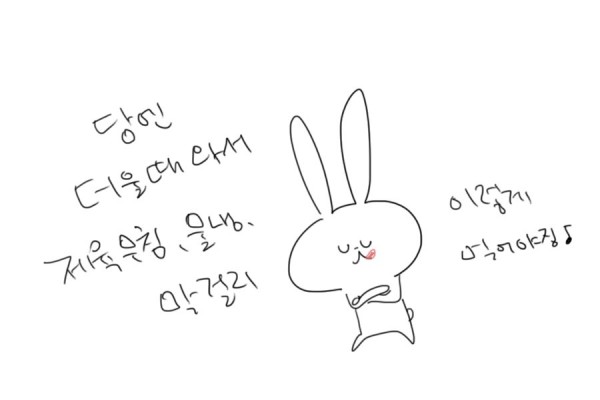 당연
더울때 와서
제육무침, 물냉,
막걸리
이렇게
먹어야징♪